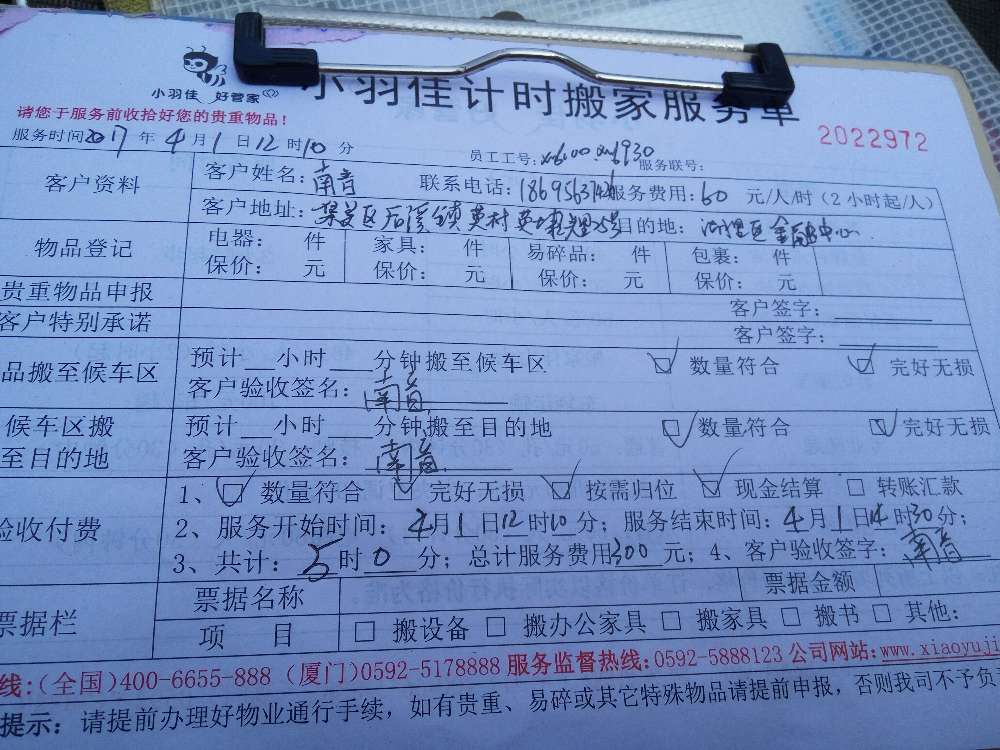 小羽佳 好管家
小羽佳计时搬家服务单
请您于服务前收拾好您的贵重物品!
2022972
服务时间2017年4月1日12时10分
员工工号: 服务联号:
客户资料
客户姓名:南音 联系电话: 服务费用:60元/人/时(2小时起/人)
客户地址:集美区后溪镇英村 目的地:湖里区金融中心
物品登记
电器: 件 家具: 件 易碎品: 件 包裹: 件
保价: 元 保价: 元 保价: 元 保价: 元
贵重物品申报 客户签字:
客户特别承诺 客户签字:
品搬至候车区
预计 小时 分钟搬至候车区 数量符合 完好无损
客户验收签名:南音
候车区搬至目的地
预计 小时 分钟搬至目的地 数量符合 完好无损
客户验收签名:南音
验收付费
1、数量符合 完好无损 按需归位 现金结算 转账汇款
2、服务开始时间:4月1日12时10分;服务结束时间:4月1日14时30分;
3、共计:5时0分;总计服务费用300元;4、客户验收签字:南音
票据栏
票据名称 票据金额
项 目 搬设备 搬办公家具 搬家具 搬书 其他:
线:(全国)400-6655-888 (厦门)0592-5178888 服务监督热线:0592-5888123 公司网站:www.xiaoyuji
提示:请提前办理好物业通行手续,如有贵重、易碎或其它特殊物品请提前申报,否则我司不予负